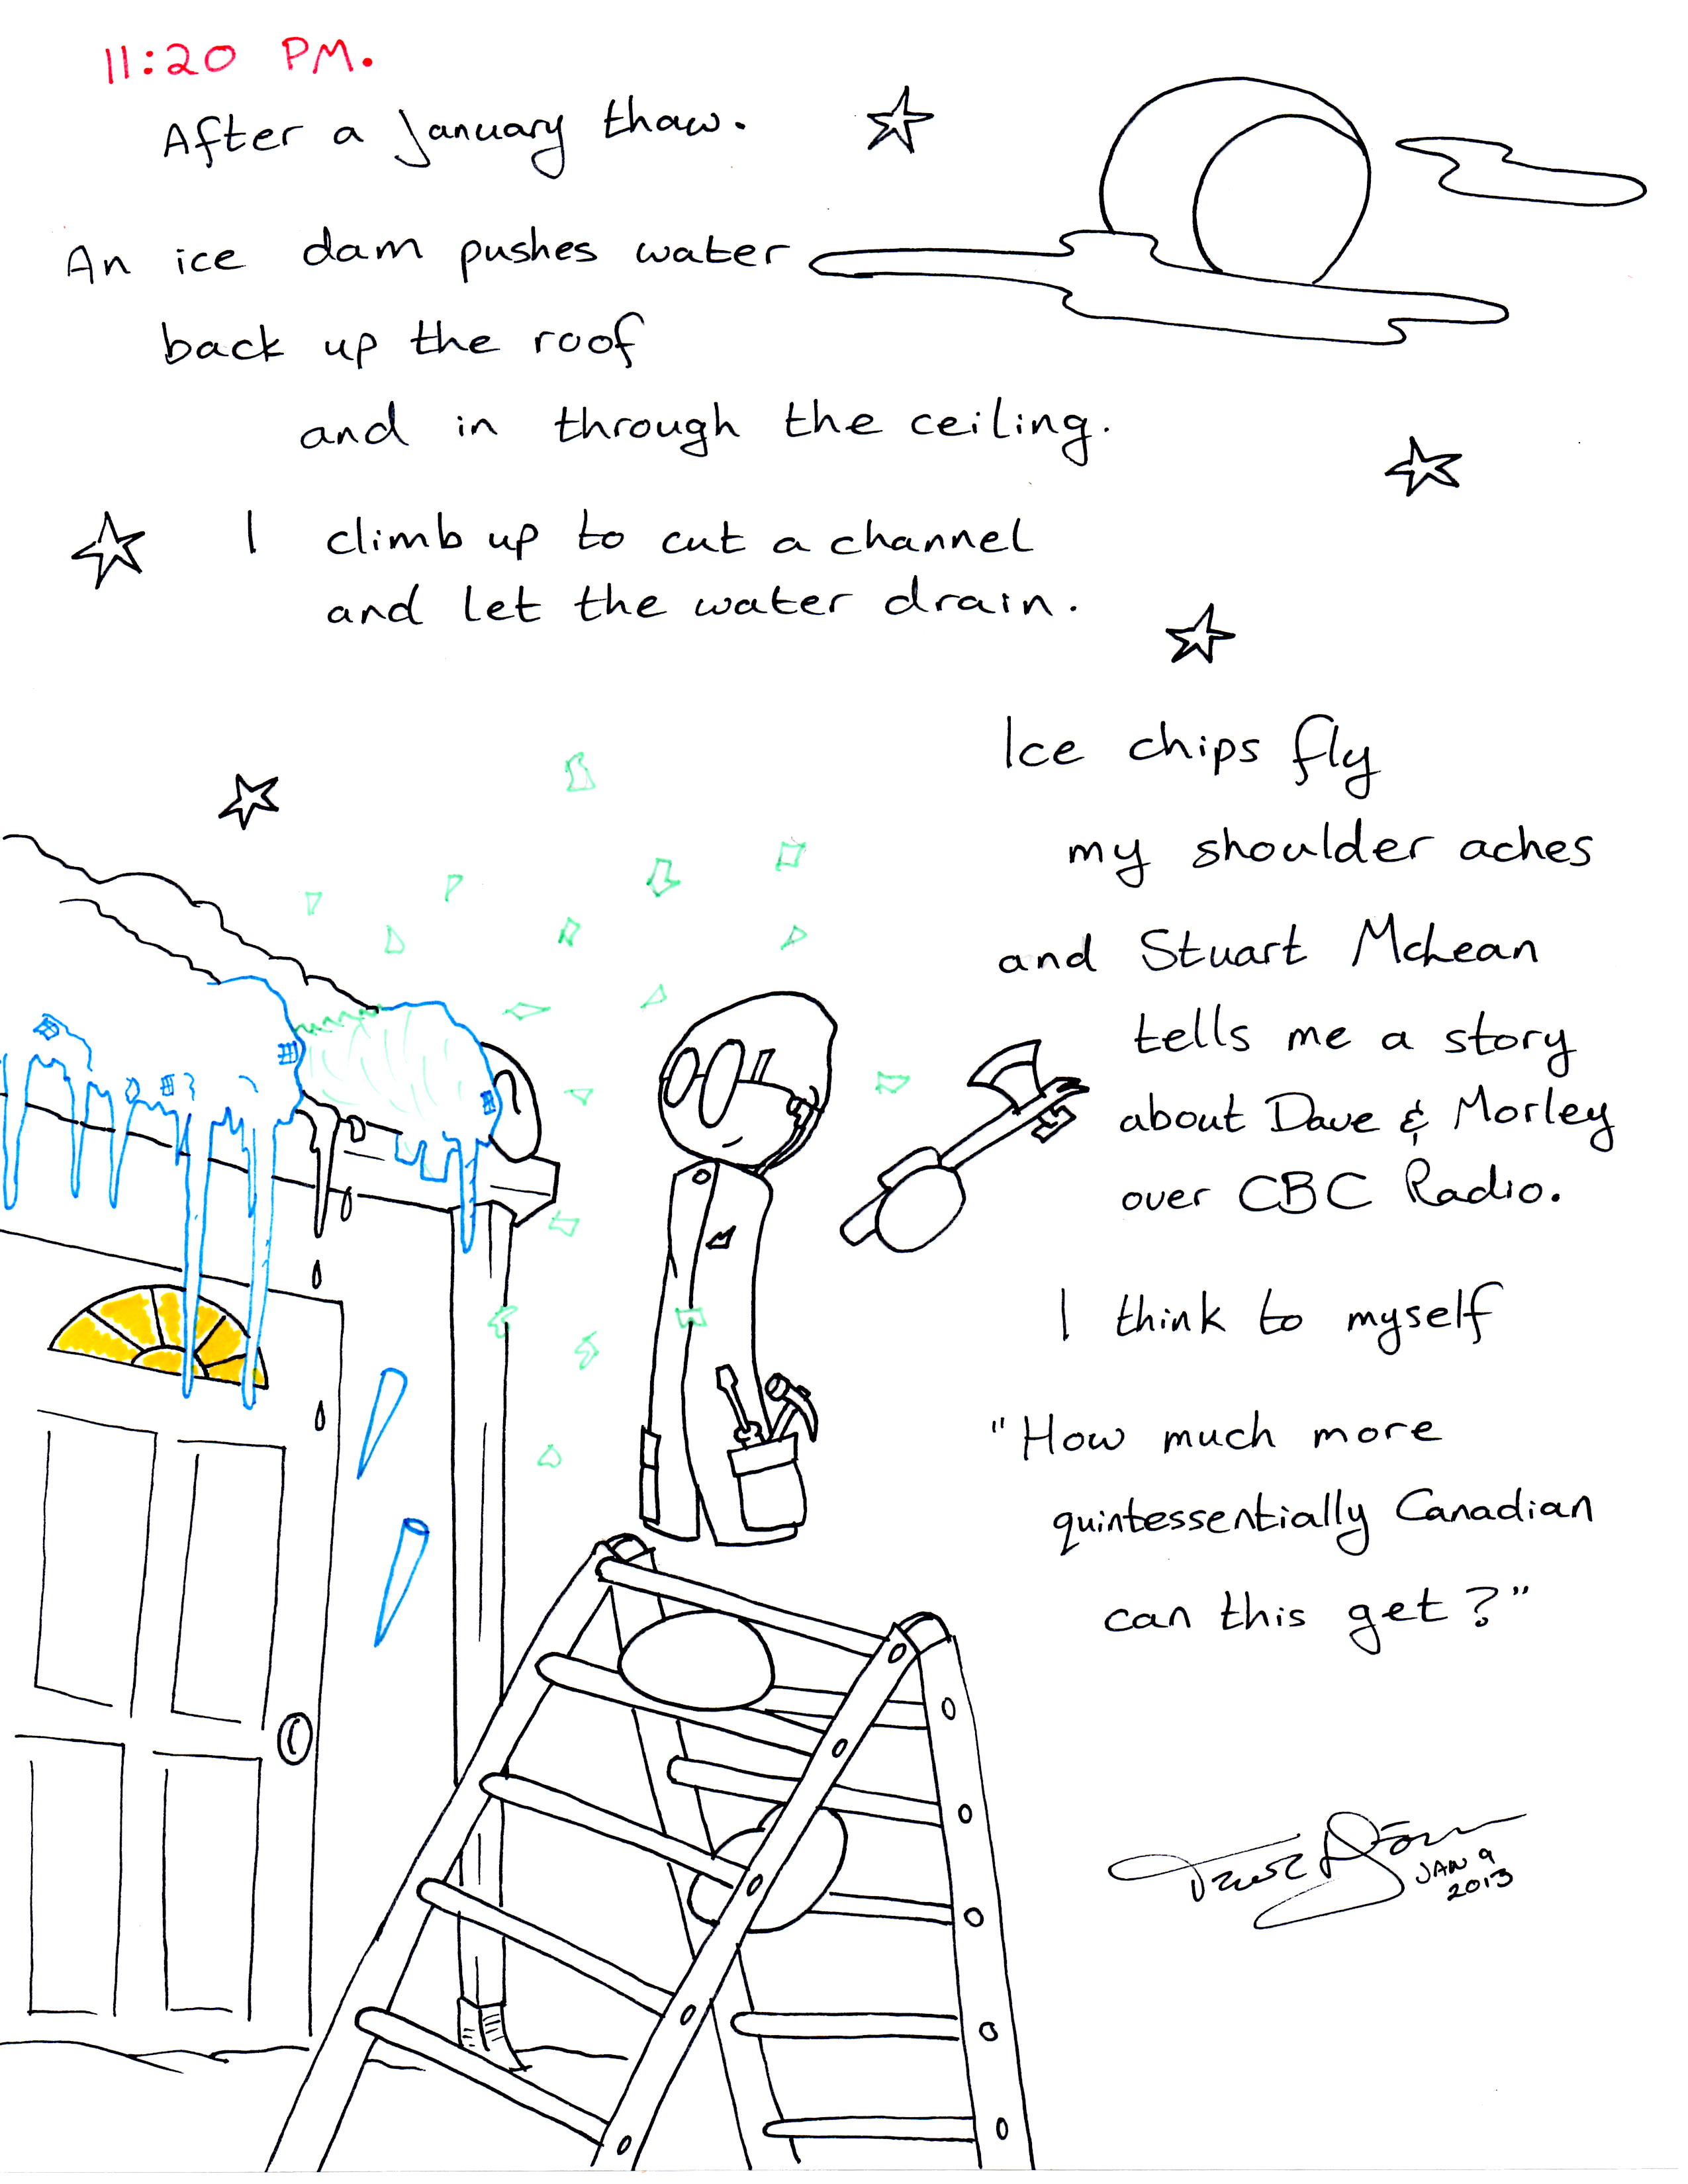 11:20 PM.
After a January thaw.
An ice dam pushes water
back up the roof
and in through the ceiling.
I climb up to cut a channel
and let the water drain.
Ice chips fly
my shoulder aches
and Stuart McLean
tells me a story
about Dave & Morley
over CBC Radio.
I think to myself
"How much more
quintessentially Canadian
can this get?"
JAN 9
2013